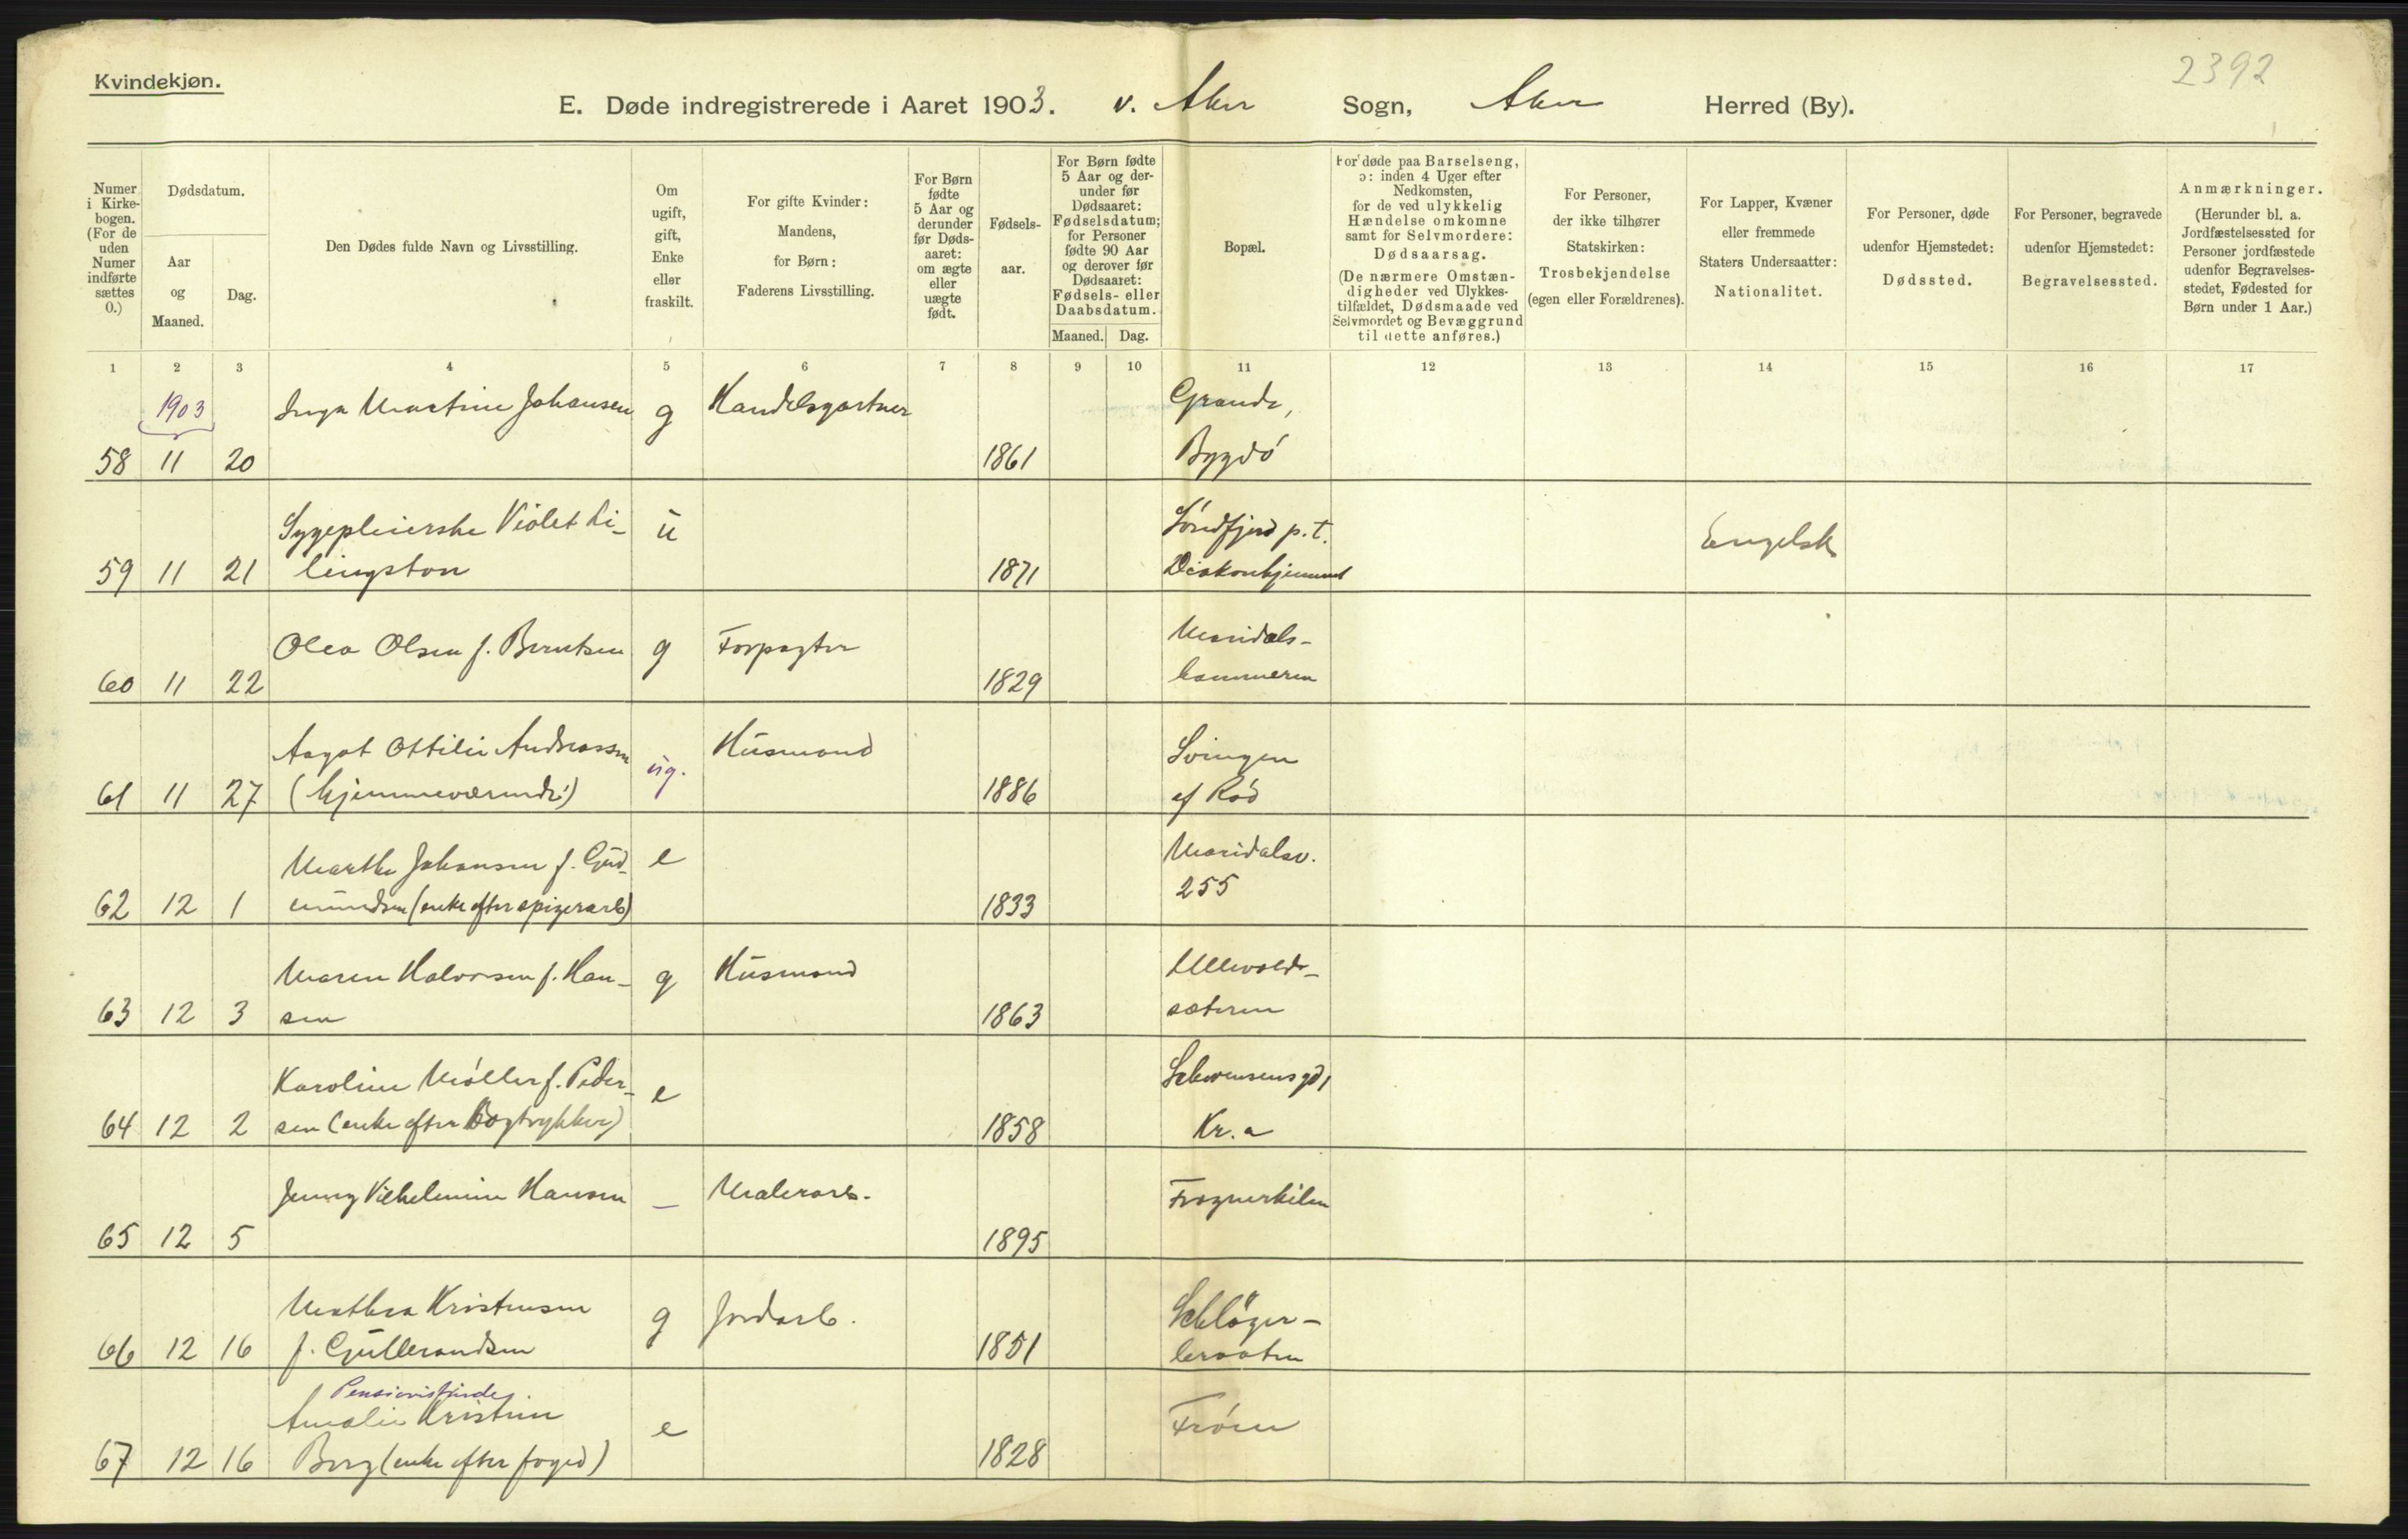 Kvindekjøn.
2392
E. Døde indregistrerede i Aaret 1903. v. Aker Sogn, Aker Herred (By).
Numer i Kirkebogen. (For de uden Numer indførte sættes 0.)
Dødsdatum.
Aar og Maaned.
Dag.
Den Dødes fulde Navn og Livsstilling.
Om ugift, gift, Enke eller fraskilt.
For gifte Kvinder: Mandens, for Børn: Faderens Livsstilling.
For Børn fødte 5 Aar og derunder før Dødsaaret: om ægte eller uægte født.
Fødselsaar.
For Børn fødte 5 Aar og derunder før Dødsaaret: Fødselsdatum; for Personer fødte 90 Aar og derover før Dødsaaret: Fødsels- eller Daabsdatum.
Maaned. Dag.
Bopæl.
For døde paa Barselseng, ɔ: inden 4 Uger efter Nedkomsten, for de ved ulykkelig Hændelse omkomne samt for Selvmordere: Dødsaarsag. (De nærmere Omstændigheder ved Ulykkestilfældet, Dødsmaade ved Selvmordet og Bevæggrund til dette anføres.)
For Personer, der ikke tilhører Statskirken: Trosbekjendelse (egen eller Forældrenes).
For Lapper, Kvæner eller fremmede Staters Undersaatter: Nationalitet.
For Personer, døde udenfor Hjemstedet: Dødssted.
For Personer, begravede udenfor Hjemstedet: Begravelsessted.
Anmærkninger. (Herunder bl. a. Jordfæstelsessted for Personer jordfæstede udenfor Begravelsesstedet, Fødested for Børn under 1 Aar.)
1 2 3 4 5 6 7 8 9 10 11 12 13 14 15 16 17
1903 Inga Martine Johansen g Handelsgartner Grande,
58 11 20 1861 Bygdö
Sygepleierske Violet Li- u Söndfjord p.t. Engelsk
59 11 21 lingston 1871 Diakonhjemmet
Olea Olsen f. Berntsen g Forpagter Maridals-
60 11 22 1829 hammeren
Aagot Ottilie Andreassen ug. Husmand Svingen
61 11 27 (hjemmeværende) 1886 af Röd
Marthe Johansen f. Gud- e Maridalsv.
62 12 1 mundsen (enke efter spigerarb) 1833 255
Maren Halvorsen f. Han- g Husmand Ullevold-
63 12 3 sen 1863 sæteren
Karoline Möller f. Peder- e Schwensensgd,
64 12 2 sen (enke efter Bogtrykker) 1858 Kr.a
Jenny Vilhelmine Hansen – Malerarb. Frognerkilen
65 12 5 1895
Mathea Kristensen g Jordarb. Schlöger-
66 12 16 f. Gulbrandsen 1851 braaten
Pensionistinde,
Amalie Kristine e Fröen
67 12 16 Borg (enke efter foged) 1828